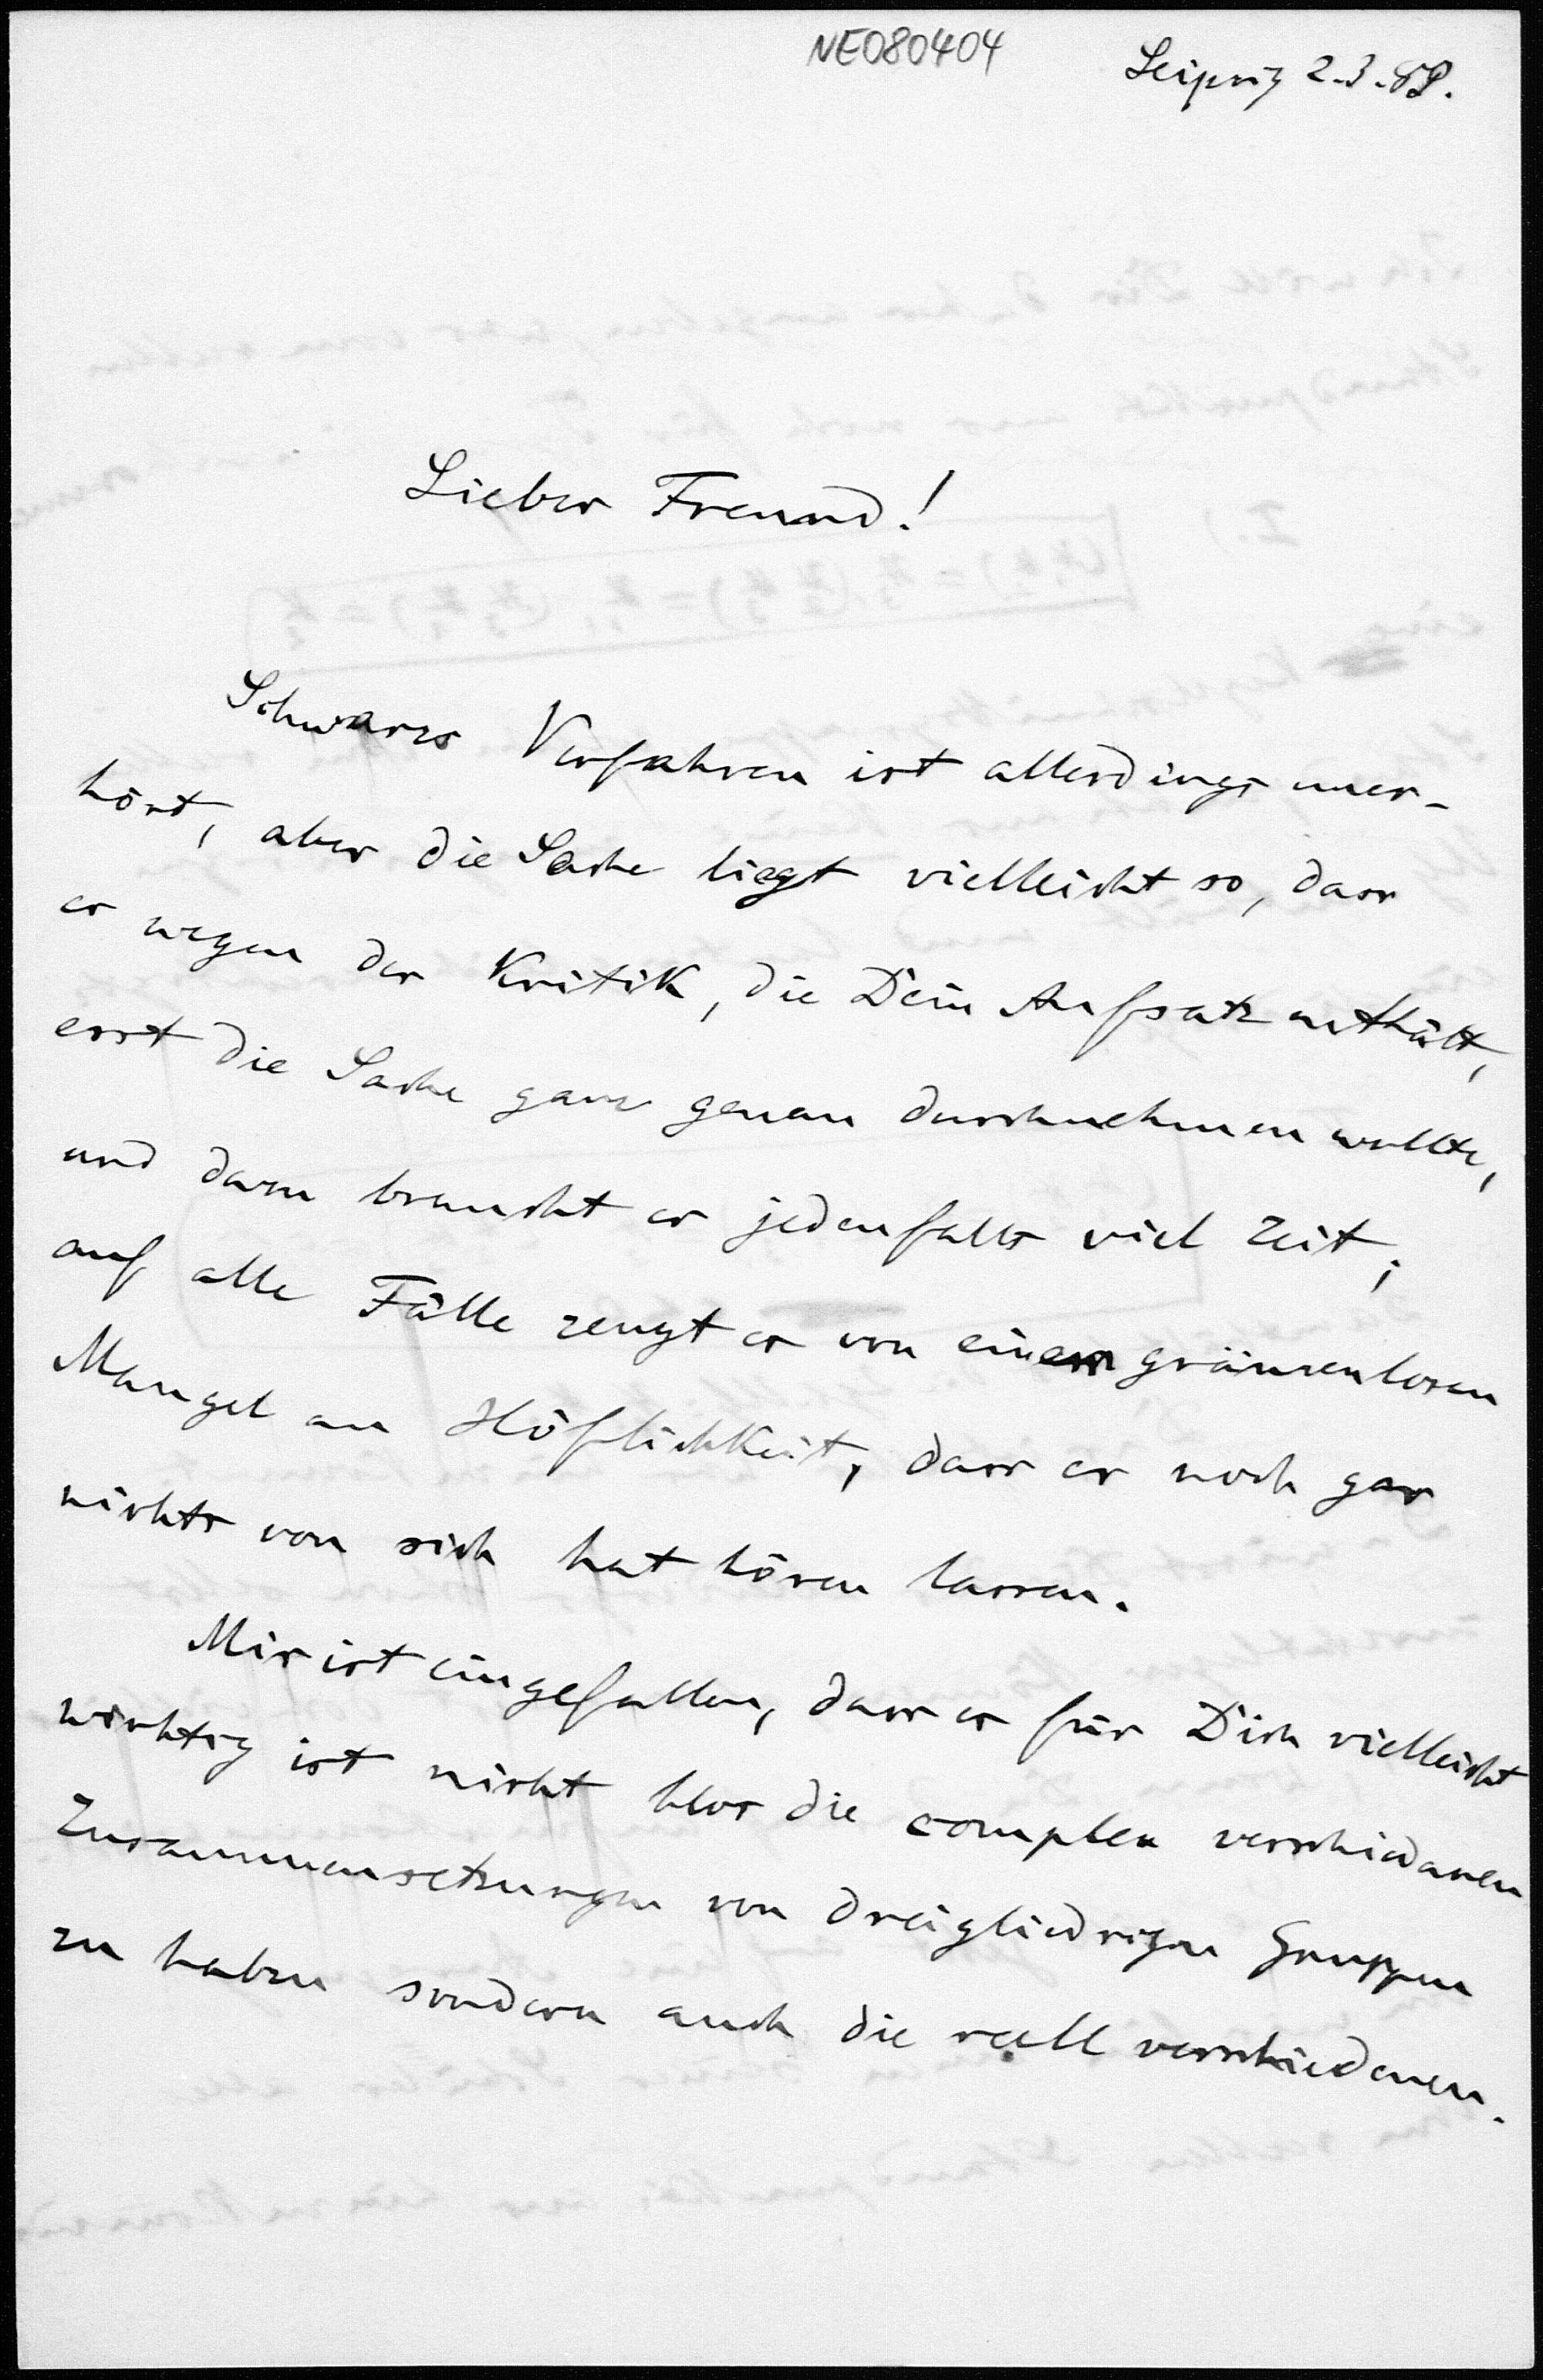 NE080404
Leipzig 2.3.89.
Lieber Freund!
Schwarzs Verfahren ist allerdings uner-
hört, aber die Sache liegt vielleicht so, dass
er wegen der Kritik, die Dein Aufsatz enthält,
erst die Sache ganz genau durchnehmen wollte,
und dazu braucht er jedenfalls viel Zeit;
auf alle Fälle zeugt es von einem gränzenlosen
Mangel an Höflichkeit, dass er noch gar
nichts von sich hat hören lassen.
Mir ist eingefallen, dass es für Dich vielleicht
wichtig ist nicht blos die complex verschiedenen
Zusammensetzungen von dreigliedrigen Gruppen
zu haben sondern auch die reell verschiedenen.